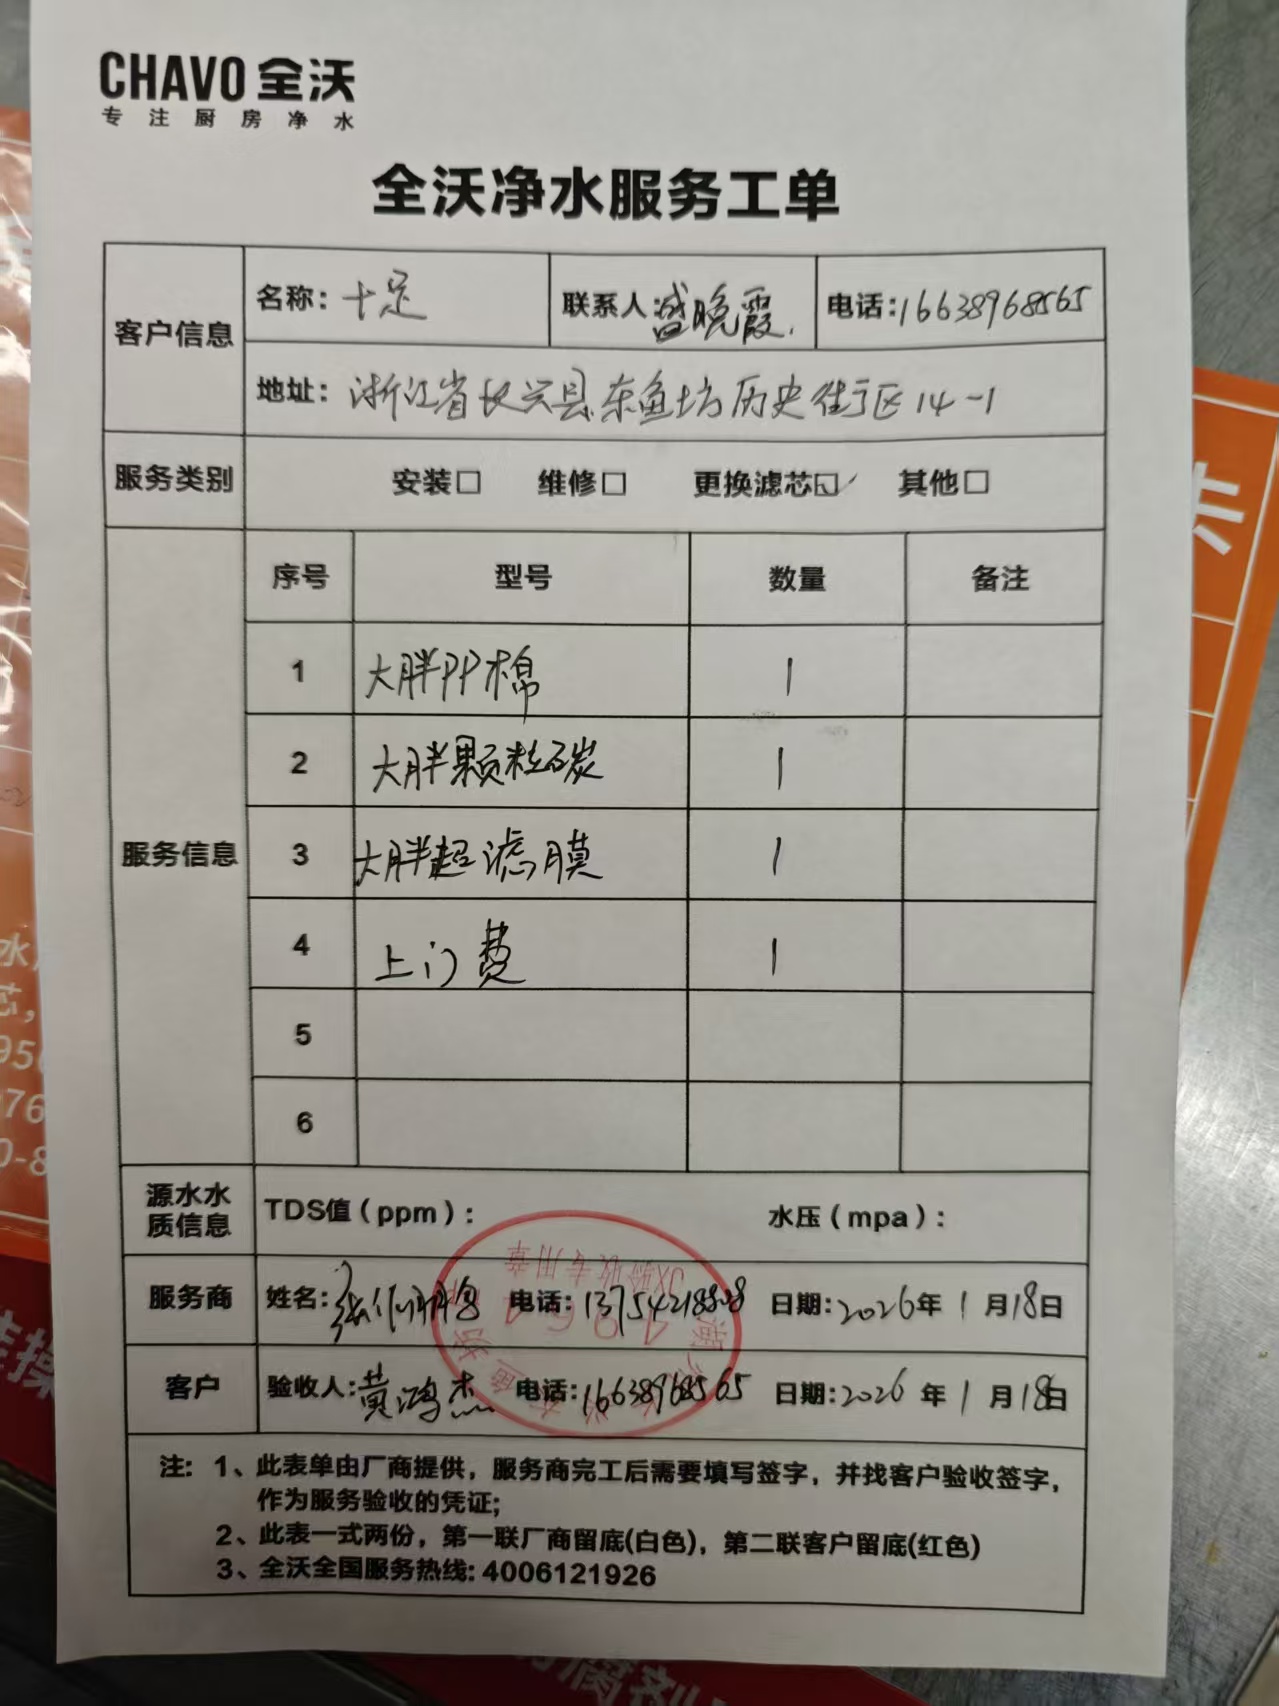 CHAVO 全沃
专注厨房净水
全沃净水服务工单
客户信息
名称：十足 联系人：盛晚霞 电话：16638968565
地址：浙江省长兴县东鱼坊历史街区14-1
服务类别 安装□ 维修□ 更换滤芯☑ 其他□
服务信息
序号 型号 数量 备注
1 大胖PP棉 1
2 大胖颗粒碳 1
3 大胖超滤膜 1
4 上门费 1
5
6
源水水质信息 TDS值（ppm）： 水压（mpa）：
服务商 姓名：张 电话：13754218808 日期：2026年1月18日
客户 验收人：黄鸿杰 电话：16638968565 日期：2026年1月18日
JX验收专用章
4964
注：1、此表单由厂商提供，服务商完工后需要填写签字，并找客户验收签字，
作为服务验收的凭证；
2、此表一式两份，第一联厂商留底(白色)，第二联客户留底(红色)
3、全沃全国服务热线：4006121926